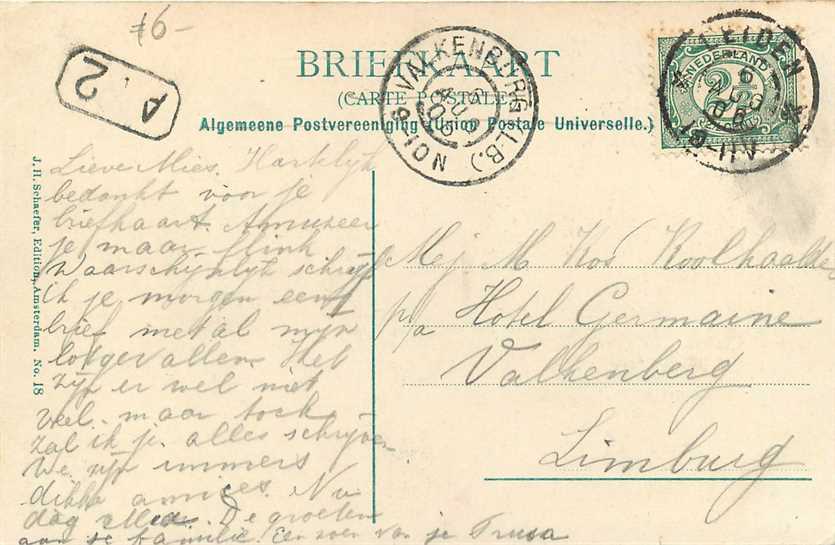 16-
A 2
BRIEFKAART
(CARTE POSTALE)
Algemeene Postvereeniging (Union Postale Universelle.)
VALKENBURG (LB.)
LEIDEN
NEDERLAND
2½
J. H. Schaefer, Edition, Amsterdam. No. 18
Lieve Mies. Hartelijk
bedankt voor je
briefkaart. Amuseer
je maar flink
Waarschijnlijk schrijf
ik je morgen een
brief met al mijn
lotgevallen. Het
zijn er wel niet
veel. maar toch
zal ik je alles schrijven
We zijn immers
dikke amices. Nu
dag Mies. De groeten
aan je familie. Een zoen van je Truus
Mej M Kos Koolhaalder
p/a Hotel Germaine
Valkenberg
Limburg